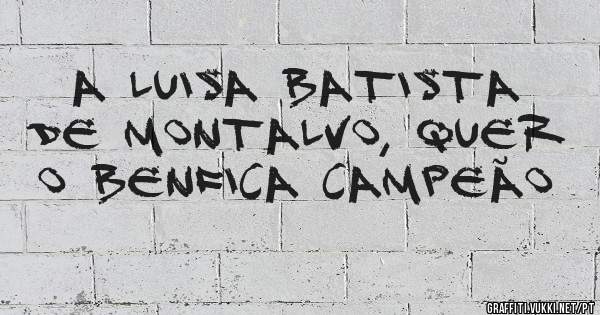 A LUISA BATISTA
DE MONTALVO, QUER
O BENFICA CAMPEÃO
GRAFFITI.VUKKI.NET/PT